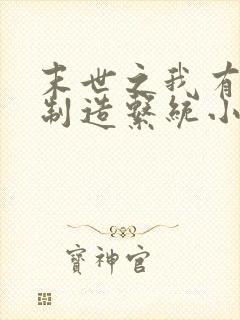 末世之我有
制造繫統小
寶神官